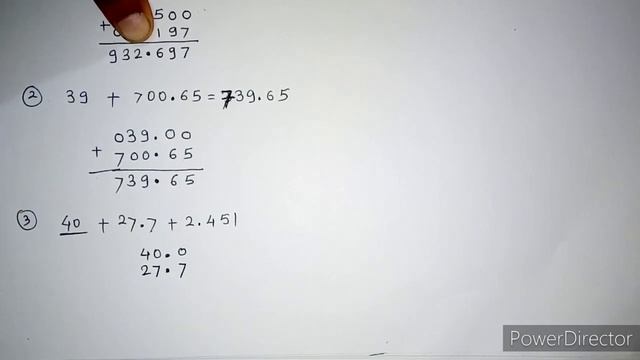 500
+ 197
932.697
② 39 + 700.65 = 739.65
039.00
+ 700.65
739.65
③ 40 + 27.7 + 2.451
40.0
27.7
PowerDirector